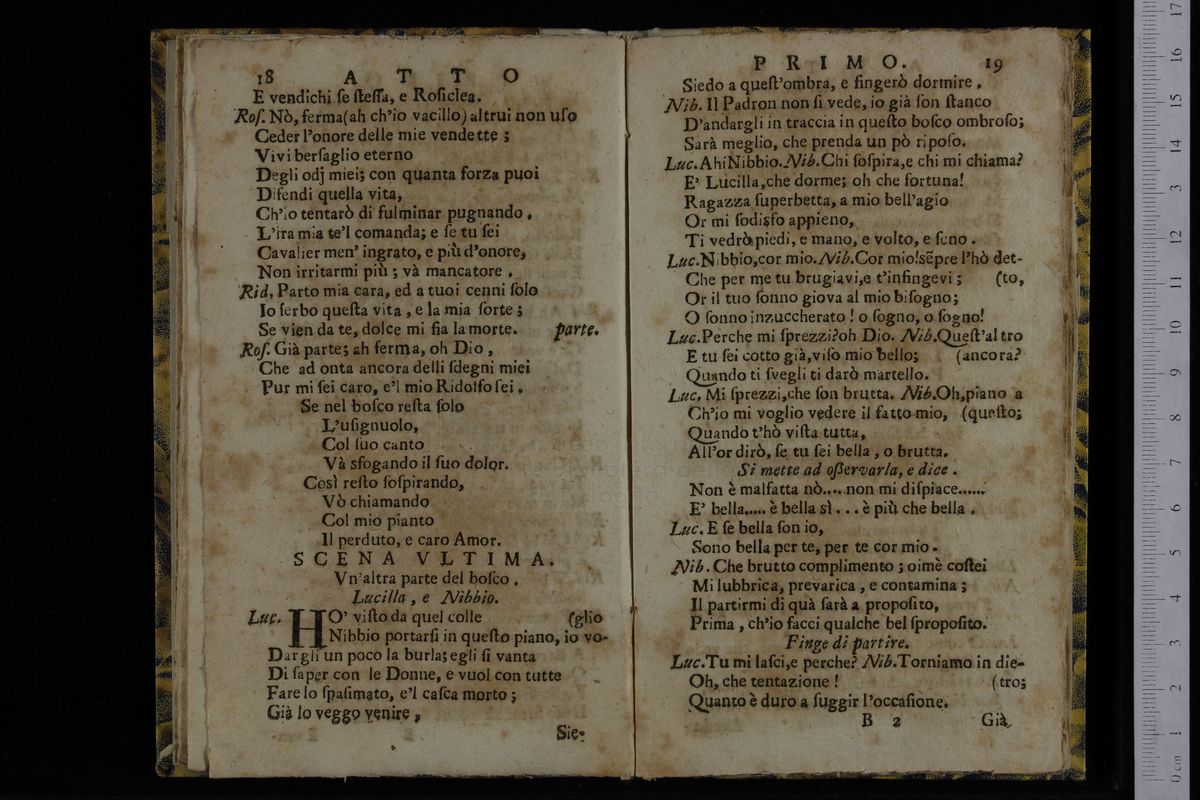 18 A T T O
E vendichi ſe ſteſſa, e Roſiclea.
Roſ. Nò, ferma(ah ch'io vacillo) altrui non uſo
Ceder l'onore delle mie vendette ;
Vivi berſaglio eterno
Degli odj miei; con quanta forza puoi
Difendi quella vita,
Ch'io tentarò di fulminar pugnando ,
L'ira mia te'l comanda; e ſe tu ſei
Cavalier men' ingrato, e più d'onore,
Non irritarmi più ; và mancatore .
Rid. Parto mia cara, ed a tuoi cenni ſolo
Io ſerbo queſta vita , e la mia ſorte ;
Se vien da te, dolce mi fia la morte. parte.
Roſ. Già parte; ah ferma, oh Dio ,
Che ad onta ancora delli ſdegni miei
Pur mi ſei caro, e'l mio Ridolfo ſei ,
Se nel boſco reſta ſolo
L'uſignuolo,
Col ſuo canto
Và sfogando il ſuo dolor.
Così reſto ſoſpirando,
Vò chiamando
Col mio pianto
Il perduto, e caro Amor.
S C E N A V L T I M A.
Vn'altra parte del boſco .
Lucilla , e Nibbio.
Luc. HO' viſto da quel colle (glio
Nibbio portarſi in queſto piano, io vo-
Dargli un poco la burla; egli ſi vanta
Di ſaper con le Donne, e vuol con tutte
Fare lo ſpaſimato, e'l caſca morto ;
Già lo veggo venire ,
Sie-
P R I M O. 19
Siedo a queſt'ombra, e fingerò dormire .
Nib. Il Padron non ſi vede, io già ſon ſtanco
D'andargli in traccia in queſto boſco ombroſo;
Sarà meglio, che prenda un pò ripoſo.
Luc.AhiNibbio.Nib.Chi ſoſpira,e chi mi chiama?
E' Lucilla,che dorme; oh che fortuna!
Ragazza ſuperbetta, a mio bell'agio
Or mi ſodisfo appieno,
Ti vedrò piedi, e mano, e volto, e ſeno .
Luc.Nibbio,cor mio.Nib.Cor mio!sẽpre l'hò det-
Che per me tu brugiavi,e t'infingevi ; (to,
Or il tuo ſonno giova al mio biſogno;
O ſonno inzuccherato ! o ſogno, o ſogno!
Luc.Perche mi ſprezzi?oh Dio. Nib.Queſt'altro
E tu ſei cotto già,viſo mio bello; (ancora?
Quando ti ſvegli ti darò martello.
Luc. Mi ſprezzi,che ſon brutta. Nib.Oh,piano a
Ch'io mi voglio vedere il fatto mio, (queſto;
Quando t'hò viſta tutta,
All'or dirò, ſe tu ſei bella , o brutta.
Si mette ad oſſervarla, e dice .
Non è malfatta nò.....non mi diſpiace......
E' bella..... è bella sì . . . è più che bella .
Luc. E ſe bella ſon io,
Sono bella per te, per te cor mio.
Nib. Che brutto complimento ; oimè coſtei
Mi lubbrica, prevarica , e contamina ;
Il partirmi di quà ſarà a propoſito,
Prima , ch'io facci qualche bel ſpropoſito.
Finge di partire.
Luc.Tu mi laſci,e perche? Nib.Torniamo in die-
Oh, che tentazione ! (tro;
Quanto è duro a fuggir l'occaſione.
B 2 Già
0 cm 1 2 3 4 5 6 7 8 9 10 11 12 13 14 15 16 17